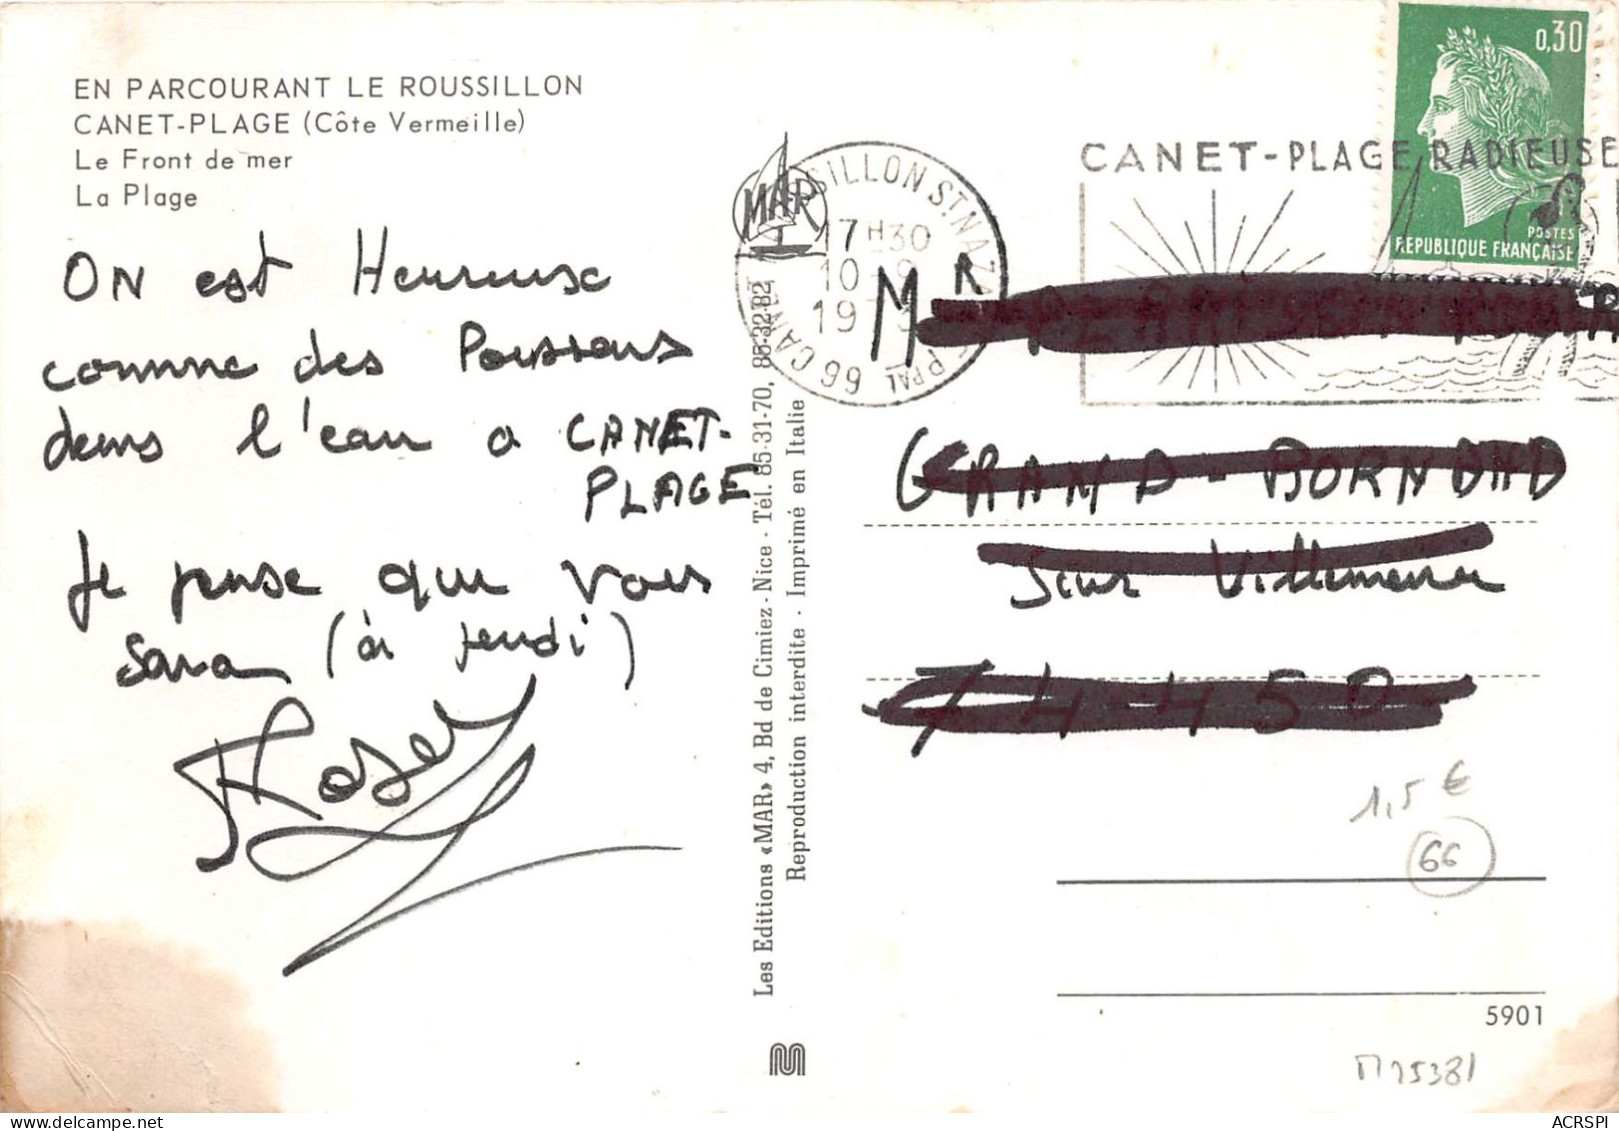 EN PARCOURANT LE ROUSSILLON
CANET-PLAGE (Côte Vermeille)
Le Front de mer
La Plage
ON est Heureuse
comme des Poissons
dans l'eau a CANET-
PLAGE
Je pense que vous
sava (à jeudi)
Roser
Les Editions «MAR» 4, Bd de Cimiez - Nice - Tél. 85-31-70, 85-32-82
Reproduction interdite - Imprimé en Italie
MAR
66 CANET SILLON ST NAZ PPAL
17H30
10
19
CANET-PLAGE RADIEUSE
0,30
POSTES
REPUBLIQUE FRANÇAISE
Mr
GRAND-BORNAND
Sur Villemena
74450
1,5 €
66
5901
M25381
ACRSPI